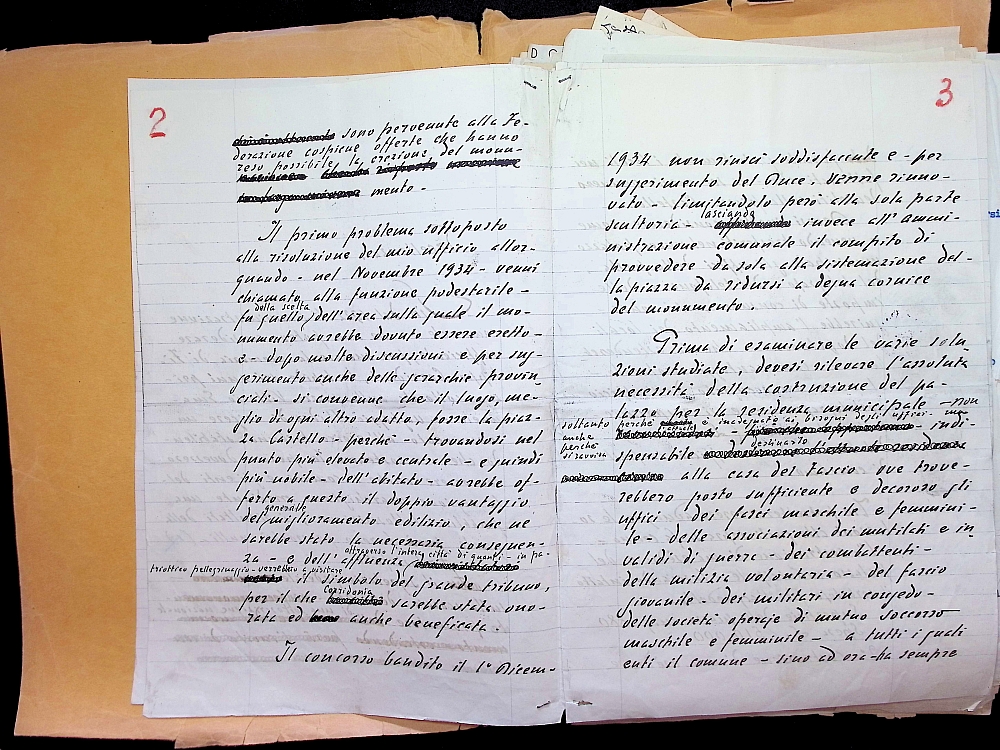 2
sono pervenute alla Fe-
derazione cospicue offerte che hanno
reso possibile la erezione del monu-
mento.
Il primo problema sottoposto
alla risoluzione del mio ufficio allor-
quando - nel Novembre 1934 - venni
chiamato alla funzione podestarile -
della scelta
fu quello dell'area sulla quale il mo-
numento avrebbe dovuto essere eretto -
e - dopo molte discussioni e per sug-
gerimento anche delle gerarchie provin-
ciali - si convenne che il luogo, me-
glio di ogni altro adatto, fosse la piaz-
za Castello - perché - trovandosi nel
punto più elevato e centrale - e quindi
più nobile - dell'abitato - avrebbe of-
ferto a questo il doppio vantaggio
generale
del miglioramento edilizio che ne
sarebbe stato la necessaria conseguen-
attraverso l'intera città di quanti - in pa-
za - e dell'affluenza
triottico pellegrinaggio - verrebbero a visitare
il simbolo del grande tribuno,
Corridonia
per il che sarebbe stata ono-
rata ed anche beneficata.
Il concorso bandito il 1° Dicem-
3
1934 non riuscì soddisfacente e - per
suggerimento del Duce, venne rinno-
vato - limitandolo però alla sola parte
lasciando
scultoria invece all'ammi-
nistrazione comunale il compito di
provvedere da sola alla sistemazione del-
la piazza da ridursi a degna cornice
del monumento.
Prima di esaminare le varie solu
zioni studiate, devesi rilevare l'assoluta
necessità della costruzione del pa-
lazzo per la residenza municipale - non
soltanto perché è inadeguato ai bisogni degli uffici - ma
anche indi-
perché destinarlo
si ravvisa spensabile
alla casa del fascio ove trove-
rebbero posto sufficiente e decoroso gli
uffici dei fasci maschile e femmini-
le - delle associazioni dei mutilati e in
validi di guerra - dei combattenti -
della milizia volontaria - del fascio
giovanile - dei militari in congedo -
delle società operaje di mutuo soccorso
maschile e femminile - a tutti i quali
enti il comune - sino ad ora - ha sempre